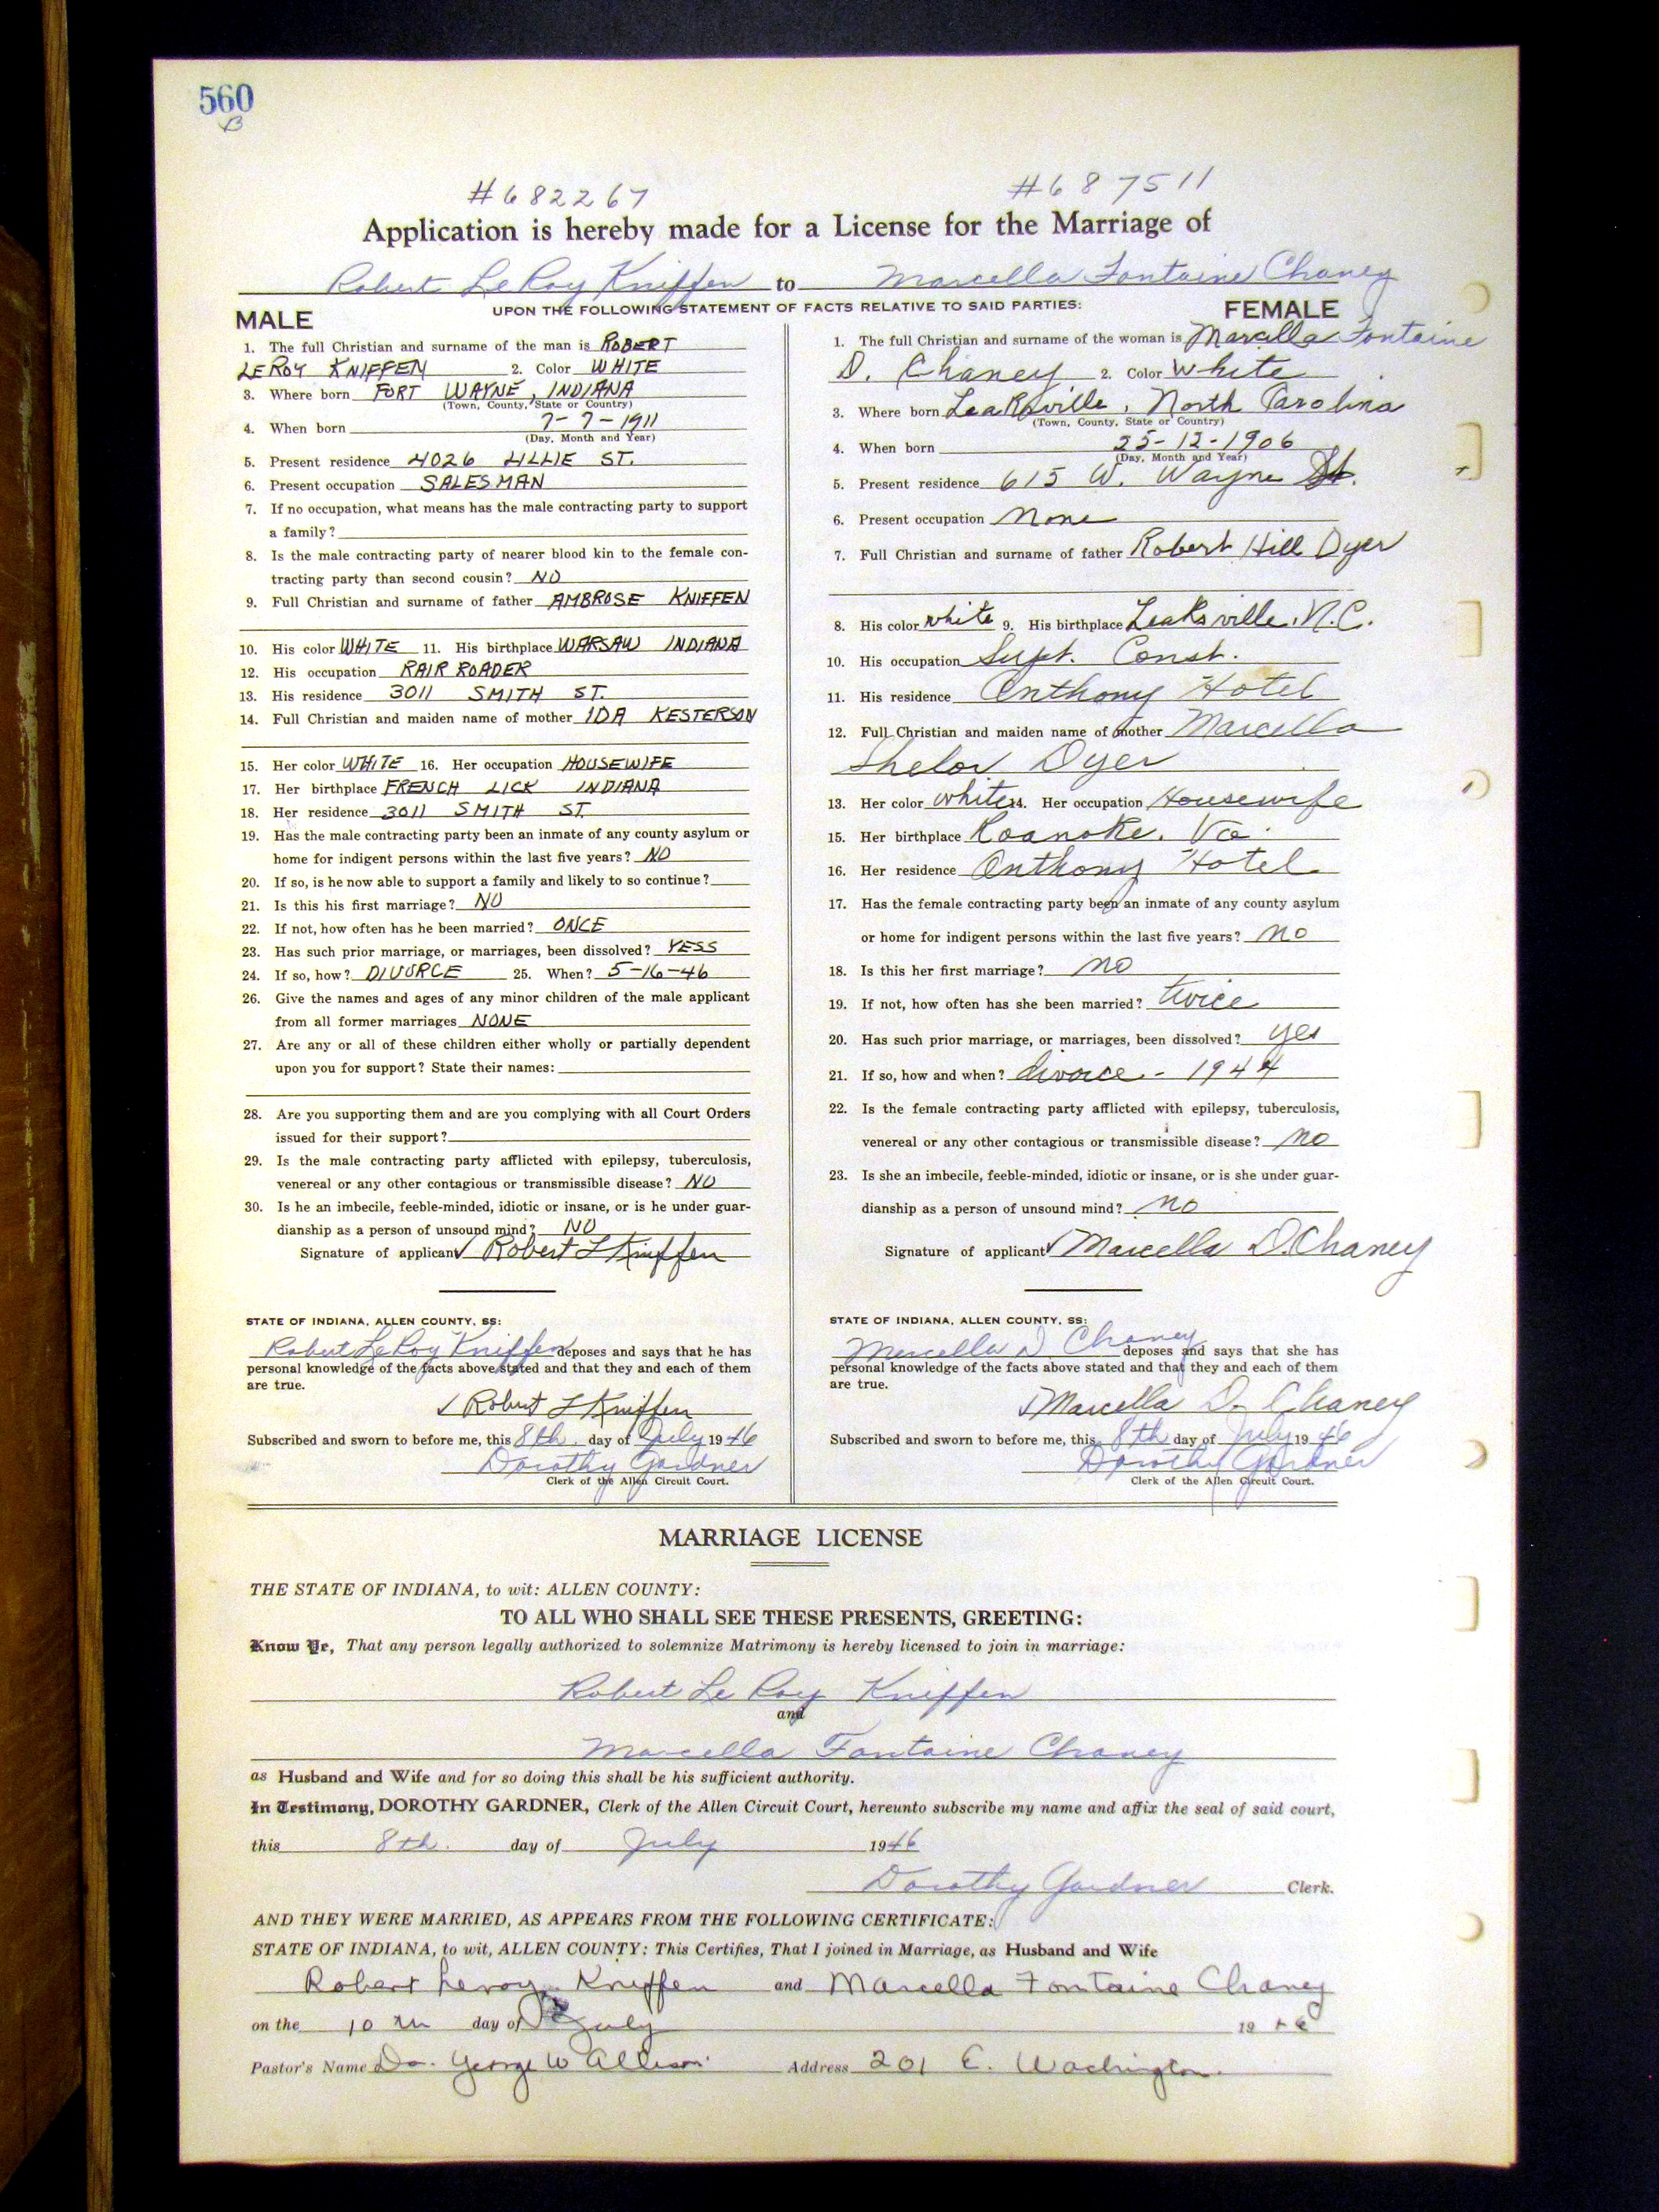 560
B
#682267 #687511
Application is hereby made for a License for the Marriage of
Robert LeRoy Kniffen to Marcella Fontaine Chaney
UPON THE FOLLOWING STATEMENT OF FACTS RELATIVE TO SAID PARTIES:
MALE
1. The full Christian and surname of the man is ROBERT
LEROY KNIFFEN 2. Color WHITE
3. Where born FORT WAYNE, INDIANA
(Town, County, State or Country)
4. When born 7-7-1911
(Day, Month and Year)
5. Present residence 4026 LILLIE ST.
6. Present occupation SALESMAN
7. If no occupation, what means has the male contracting party to support
a family?
8. Is the male contracting party of nearer blood kin to the female con-
tracting party than second cousin? NO
9. Full Christian and surname of father AMBROSE KNIFFEN
10. His color WHITE 11. His birthplace WARSAW INDIANA
12. His occupation RAIR ROADER
13. His residence 3011 SMITH ST.
14. Full Christian and maiden name of mother IDA KESTERSON
15. Her color WHITE 16. Her occupation HOUSEWIFE
17. Her birthplace FRENCH LICK INDIANA
18. Her residence 3011 SMITH ST.
19. Has the male contracting party been an inmate of any county asylum or
home for indigent persons within the last five years? NO
20. If so, is he now able to support a family and likely to so continue?
21. Is this his first marriage? NO
22. If not, how often has he been married? ONCE
23. Has such prior marriage, or marriages, been dissolved? YESS
24. If so, how? DIVORCE 25. When? 5-16-46
26. Give the names and ages of any minor children of the male applicant
from all former marriages NONE
27. Are any or all of these children either wholly or partially dependent
upon you for support? State their names:
28. Are you supporting them and are you complying with all Court Orders
issued for their support?
29. Is the male contracting party afflicted with epilepsy, tuberculosis,
venereal or any other contagious or transmissible disease? NO
30. Is he an imbecile, feeble-minded, idiotic or insane, or is he under guar-
dianship as a person of unsound mind? NO
Signature of applicant √ Robert L Kniffen
STATE OF INDIANA, ALLEN COUNTY, SS:
Robert LeRoy Kniffen deposes and says that he has
personal knowledge of the facts above stated and that they and each of them
are true.
√ Robert L Kniffen
Subscribed and sworn to before me, this 8th. day of July 1946
Dorothy Gardner
Clerk of the Allen Circuit Court.
FEMALE
1. The full Christian and surname of the woman is Marcella Fontaine
D. Chaney 2. Color White
3. Where born Leaksville, North Carolina
(Town, County, State or Country)
4. When born 25-12-1906
(Day, Month and Year)
5. Present residence 615 W. Wayne St.
6. Present occupation None
7. Full Christian and surname of father Robert Hill Dyer
8. His color white 9. His birthplace Leaksville, N.C.
10. His occupation Supt. Const.
11. His residence Anthony Hotel
12. Full Christian and maiden name of mother Marcella
Shelor Dyer
13. Her color white 14. Her occupation Housewife
15. Her birthplace Roanoke, Va.
16. Her residence Anthony Hotel
17. Has the female contracting party been an inmate of any county asylum
or home for indigent persons within the last five years? no
18. Is this her first marriage? no
19. If not, how often has she been married? twice
20. Has such prior marriage, or marriages, been dissolved? yes
21. If so, how and when? divorce - 1944
22. Is the female contracting party afflicted with epilepsy, tuberculosis,
venereal or any other contagious or transmissible disease? no
23. Is she an imbecile, feeble-minded, idiotic or insane, or is she under guar-
dianship as a person of unsound mind? no
Signature of applicant √ Marcella D. Chaney
STATE OF INDIANA, ALLEN COUNTY, SS:
Marcella D. Chaney deposes and says that she has
personal knowledge of the facts above stated and that they and each of them
are true.
√ Marcella D. Chaney
Subscribed and sworn to before me, this 8th day of July 1946
Dorothy Gardner
Clerk of the Allen Circuit Court.
MARRIAGE LICENSE
THE STATE OF INDIANA, to wit: ALLEN COUNTY:
TO ALL WHO SHALL SEE THESE PRESENTS, GREETING:
Know Ye, That any person legally authorized to solemnize Matrimony is hereby licensed to join in marriage:
Robert Le Roy Kniffen
and
Marcella Fontaine Chaney
as Husband and Wife and for so doing this shall be his sufficient authority.
In Testimony, DOROTHY GARDNER, Clerk of the Allen Circuit Court, hereunto subscribe my name and affix the seal of said court,
this 8th. day of July 1946
Dorothy Gardner Clerk.
AND THEY WERE MARRIED, AS APPEARS FROM THE FOLLOWING CERTIFICATE:
STATE OF INDIANA, to wit, ALLEN COUNTY: This Certifies, That I joined in Marriage, as Husband and Wife
Robert Leroy Kniffen and Marcella Fontaine Chaney
on the 10 th day of July 1946
Pastor's Name Dr. George W Allison Address 201 E. Washington.